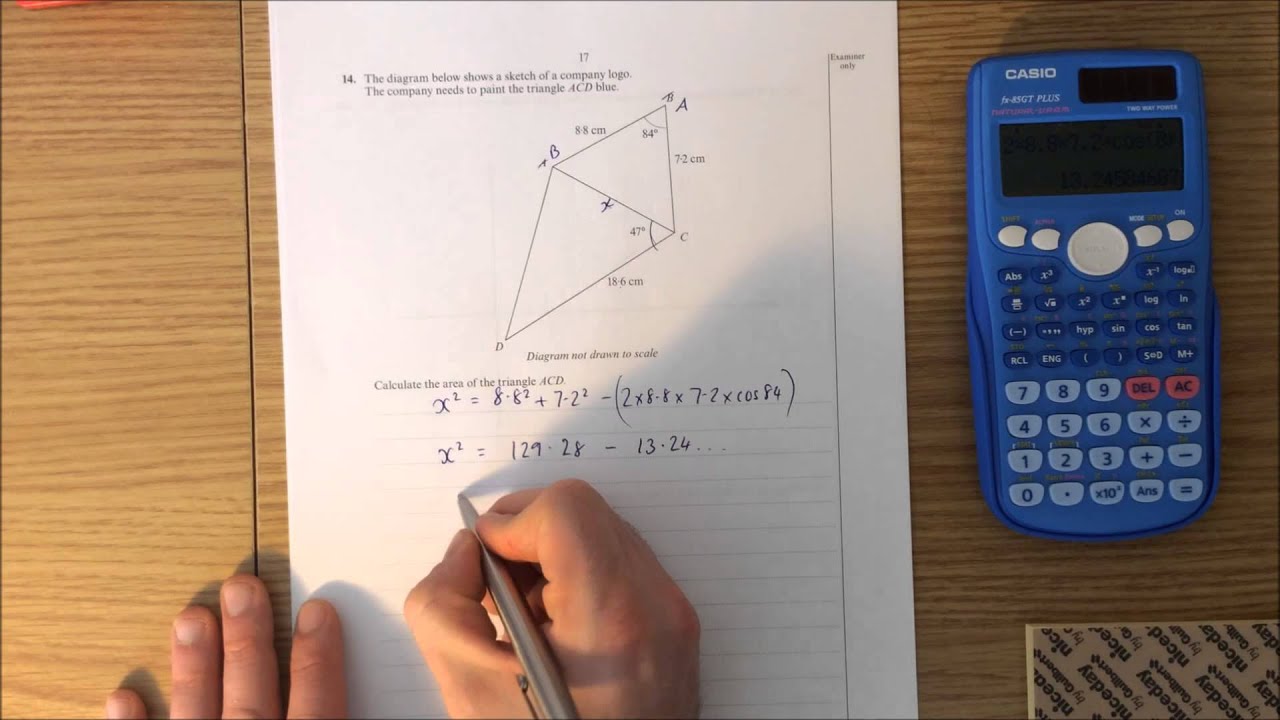 17
Examiner
only
14. The diagram below shows a sketch of a company logo.
The company needs to paint the triangle ACD blue.
B A
8·8 cm
84°
7·2 cm
A B
x
47°
C
18·6 cm
D
Diagram not drawn to scale
Calculate the area of the triangle ACD.
x² = 8·8² + 7·2² - (2×8·8×7·2×cos84)
x² = 129·28 - 13·24...
CASIO
fx-85GT PLUS
TWO WAY POWER
2×8.8×7.2×cos(8
13.24584687
SHIFT ALPHA MODE SETUP ON
Abs x³ x⁻¹ log
√ x² log ln
(−) hyp sin cos tan
RCL ENG ( ) S⇔D M+
7 8 9 DEL AC
4 5 6 × ÷
1 2 3 + −
0 · ×10ˣ Ans =
niceday
by Guilbert
niceday
by Guilbert
niceday
by Guilbert
niceday